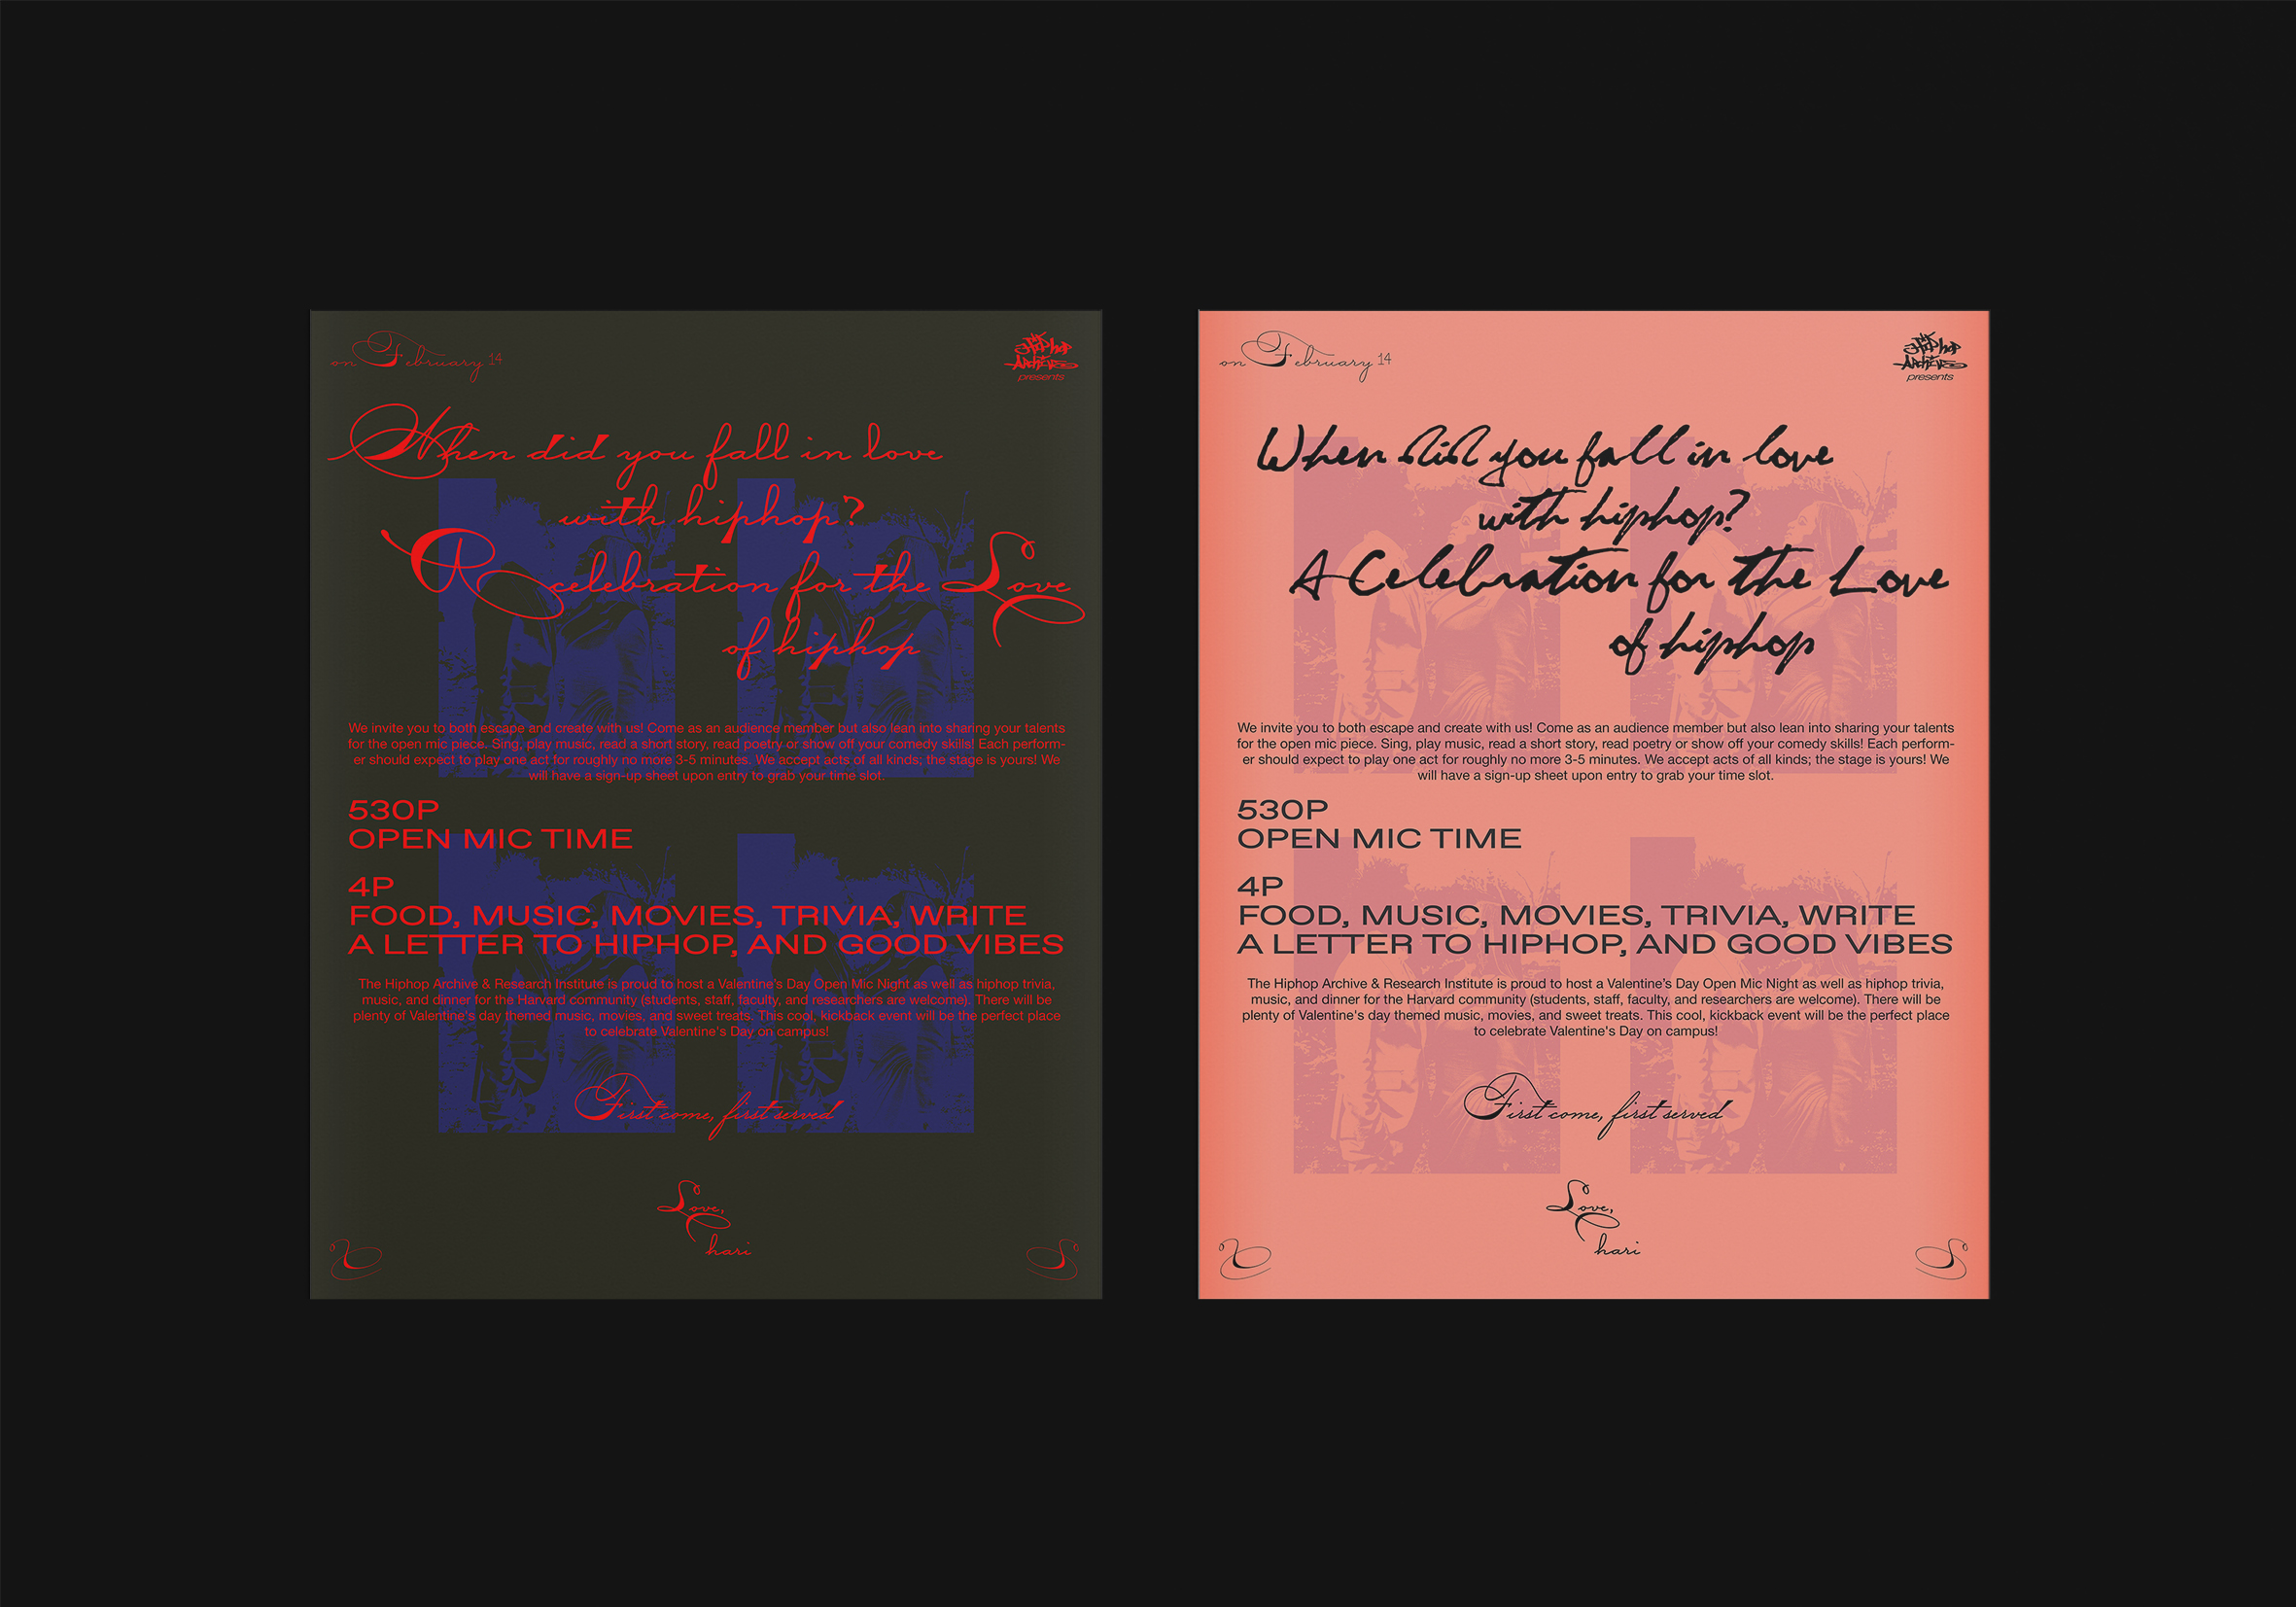 on February 14
Hiphop
Archive
presents
When did you fall in love
with hiphop?
A celebration for the Love
of hiphop
We invite you to both escape and create with us! Come as an audience member but also lean into sharing your talents
for the open mic piece. Sing, play music, read a short story, read poetry or show off your comedy skills! Each perform-
er should expect to play one act for roughly no more 3-5 minutes. We accept acts of all kinds; the stage is yours! We
will have a sign-up sheet upon entry to grab your time slot.
530P
OPEN MIC TIME
4P
FOOD, MUSIC, MOVIES, TRIVIA, WRITE
A LETTER TO HIPHOP, AND GOOD VIBES
The Hiphop Archive & Research Institute is proud to host a Valentine's Day Open Mic Night as well as hiphop trivia,
music, and dinner for the Harvard community (students, staff, faculty, and researchers are welcome). There will be
plenty of Valentine's day themed music, movies, and sweet treats. This cool, kickback event will be the perfect place
to celebrate Valentine's Day on campus!
First come, first served
Love,
hari
on February 14
Hiphop
Archive
presents
When did you fall in love
with hiphop?
A Celebration for the Love
of hiphop
We invite you to both escape and create with us! Come as an audience member but also lean into sharing your talents
for the open mic piece. Sing, play music, read a short story, read poetry or show off your comedy skills! Each perform-
er should expect to play one act for roughly no more 3-5 minutes. We accept acts of all kinds; the stage is yours! We
will have a sign-up sheet upon entry to grab your time slot.
530P
OPEN MIC TIME
4P
FOOD, MUSIC, MOVIES, TRIVIA, WRITE
A LETTER TO HIPHOP, AND GOOD VIBES
The Hiphop Archive & Research Institute is proud to host a Valentine's Day Open Mic Night as well as hiphop trivia,
music, and dinner for the Harvard community (students, staff, faculty, and researchers are welcome). There will be
plenty of Valentine's day themed music, movies, and sweet treats. This cool, kickback event will be the perfect place
to celebrate Valentine's Day on campus!
First come, first served
Love,
hari